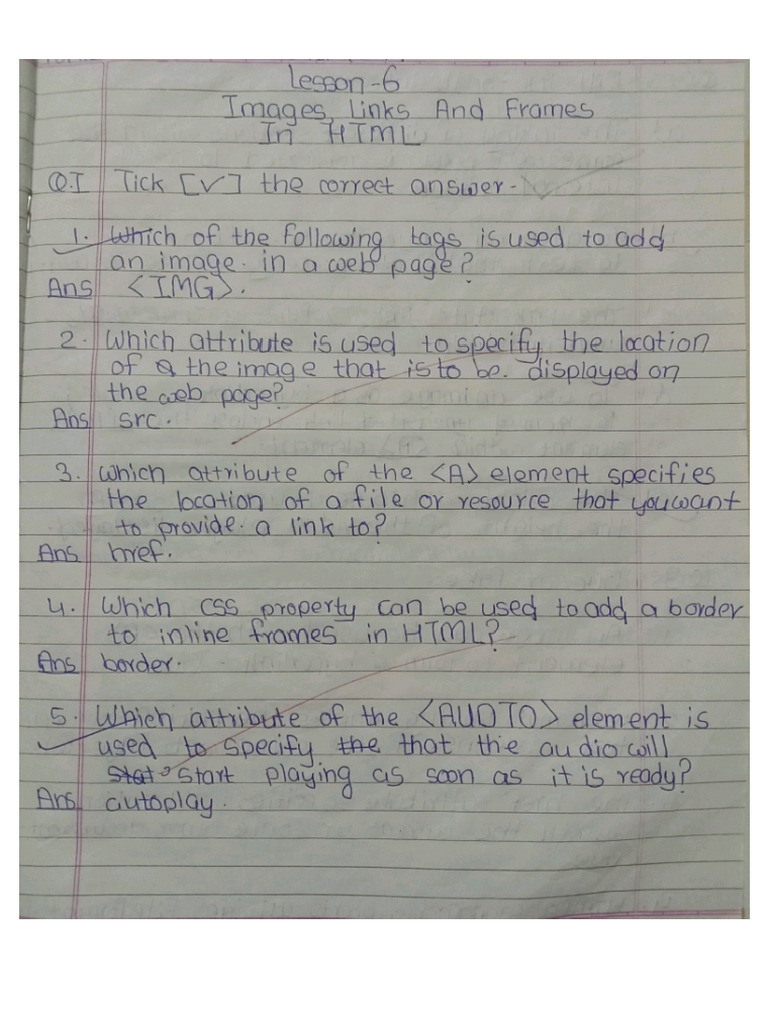 Lesson-6
Images, Links And Frames
In HTML
Q.I Tick [✓] the correct answer.
1. Which of the following tags is used to add
an image. in a web page?
Ans <IMG>.
2. Which attribute is used to specify the location
of the image that is to be. displayed on
the web page?
Ans src.
3. Which attribute of the <A> element specifies
the location of a file or resource that you want
to provide. a link to?
Ans href.
4. Which CSS property can be used to add a border
to inline frames in HTML?
Ans border.
5. Which attribute of the <AUDTO> element is
used to specify the that the audio will
Stat start playing as soon as it is ready?
Ans autoplay.